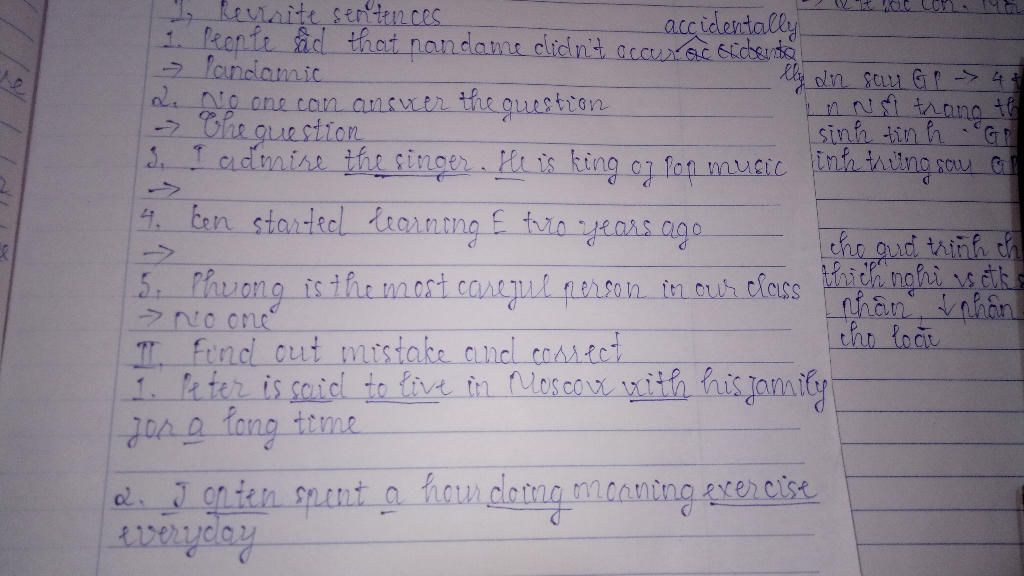 I, Rewrite sentences
accidentally
1. People said that pandame didn't occur
lly
→ Pandamic
2. No one can answer the question
→ The question
3. I admire the singer. He is king of Pop music
→
4. Ken started learning E two years ago
→
5. Phuong is the most careful person in our class
→ No one
II. Find out mistake and correct
1. Peter is said to live in Moscow with his family
for a long time
2. I often spent a hour doing morning exercise
everyday
sau GP → 4
NST trang
sinh tinh · GP
trứng sau
cho quá trình ch
thích nghi vs đk s
phân, ↓ phân
cho loài